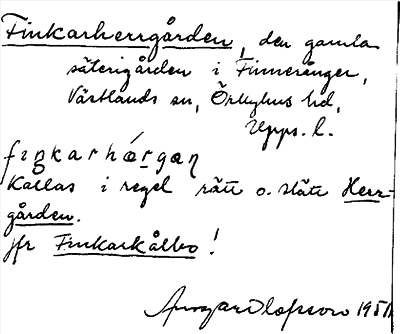 Finkarherrgården, den gamla
säterigården i Finnerånger,
Västlands sn, Örbyhus hd,
Upps. l.
fiŋkarhǽ̨rgaɳ
Kallas i regel rätt o. slätt Herr-
gården.
jfr Finkarkålbo!
Olofsson 1951